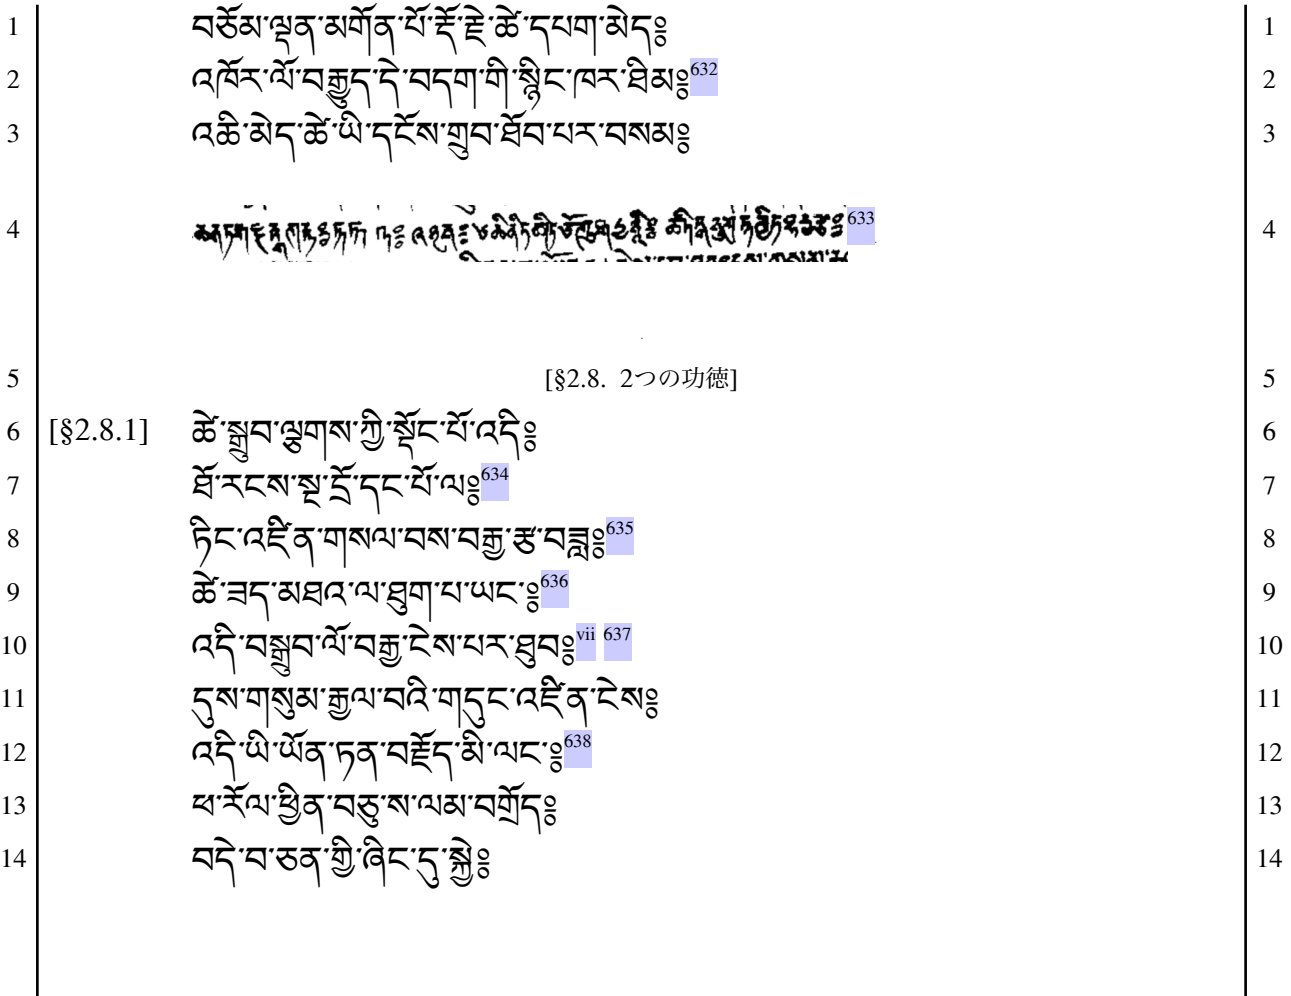 1 བཅོམ་ལྡན་མགོན་པོ་རྡོ་རྗེ་ཚེ་དཔག་མེད༔ 1
2 འཁོར་ལོ་བརྒྱུད་དེ་བདག་གི་སྙིང་ཁར་ཐིམ༔632 2
3 འཆི་མེད་ཚེ་ཡི་དངོས་གྲུབ་ཐོབ་པར་བསམ༔ 3
4 633 4
5 [§2.8. 2つの功徳] 5
6 [§2.8.1] ཚེ་སྒྲུབ་ལྕགས་ཀྱི་སྡོང་པོ་འདི༔ 6
7 ཐོ་རངས་སྔ་དྲོ་དང་པོ་ལ༔634 7
8 ཏིང་འཛིན་གསལ་བས་བརྒྱ་རྩ་བཟླ༔635 8
9 ཚེ་ཟད་མཐའ་ལ་ཐུག་པ་ཡང་༔636 9
10 འདི་བསྒྲུབ་ལོ་བརྒྱ་ངེས་པར་ཐུབ༔vii 637 10
11 དུས་གསུམ་རྒྱལ་བའི་གདུང་འཛིན་ངེས༔ 11
12 འདི་ཡི་ཡོན་ཏན་བརྗོད་མི་ལང་༔638 12
13 ཕ་རོལ་ཕྱིན་བཅུ་ས་ལམ་བགྲོད༔ 13
14 བདེ་བ་ཅན་གྱི་ཞིང་དུ་སྐྱེ༔ 14